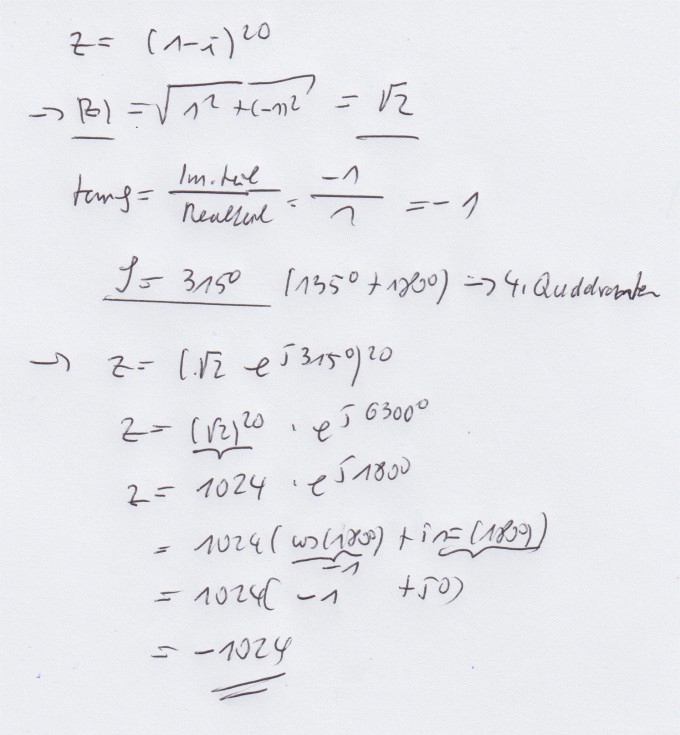 z = (1-i)^20
→ |z| = √(1² + (-1)²) = √2
tanφ = Im.teil / Realteil = -1 / 1 = -1
φ = 315° (135° + 180°) → 4. Quadranten
→ z = (√2 e^j315°)^20
z = (√2)^20 · e^j6300°
z = 1024 · e^j180°
= 1024 ( cos(180°) + i (180°) )
-1
= 1024( -1 + j0)
= -1024